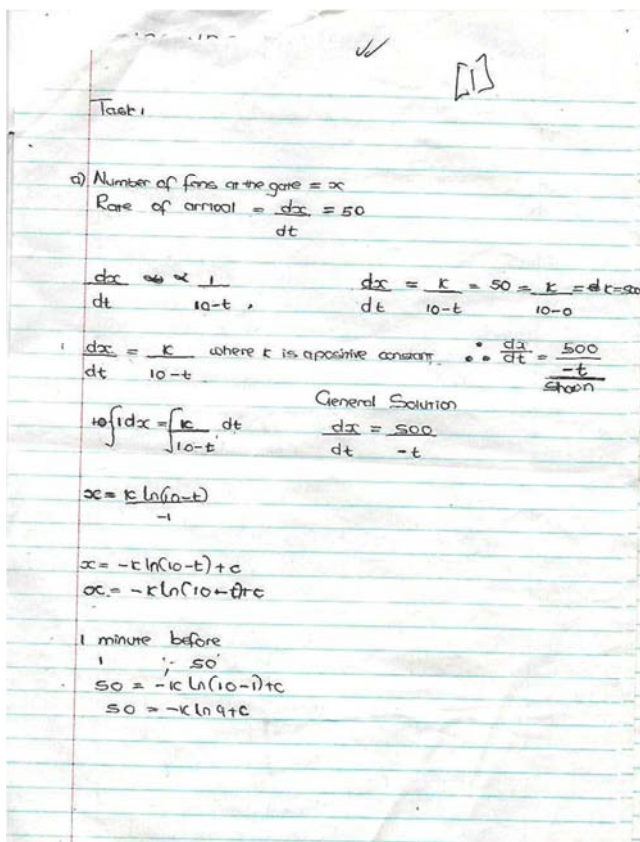 [1]
Task 1
a) Number of fans at the gate = x
Rate of arrival = dx/dt = 50
dx/dt ∝ 1/10-t , dx/dt = k/10-t = 50 = k/10-0 = k=500
dx/dt = k/10-t where k is a positive constant ∴ dx/dt = 500/-t
shown
General Solution
∫1dx = ∫k/10-t dt dx/dt = 500/-t
x = k ln(10-t)/-1
x = -k ln(10-t) + c
x = -k ln(10-t)+c
1 minute before
1 ; 50
50 = -k ln(10-1)+c
50 = -k ln 9+c